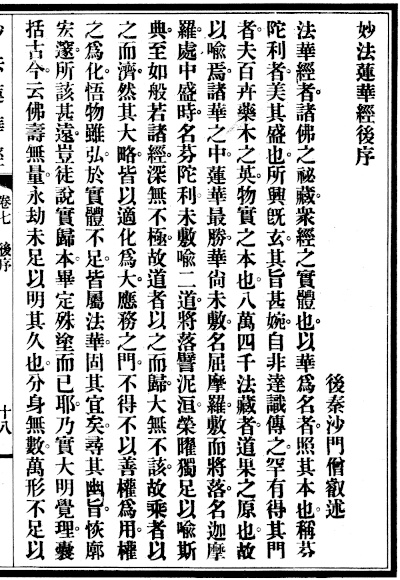 妙法蓮華經後序
後秦沙門僧叡述
法華經者。諸佛之祕藏。衆經之實體也。以華爲名者。照其本也。稱芬
陀利者。美其盛也。所興旣玄。其旨甚婉。自非達識傳之。罕有得其門
者。夫百卉藥木之英。物實之本也。八萬四千法藏者。道果之原也。故
以喻焉。諸華之中。蓮華最勝。華尙未敷。名屈摩羅。敷而將落。名迦摩
羅。處中盛時。名芬陀利。未敷喻二道。將落譬泥洹。榮曜獨足以喻斯
典。至如般若諸經。深無不極。故道者以之而歸。大無不該。故乘者以
之而濟。然其大略。皆以適化爲大。應務之門。不得不以善權爲用。權
之爲化。悟物雖弘。於實體不足。皆屬法華。固其宜矣。尋其幽旨。恢廓
宏邃。所該甚遠。豈徒說實歸本。畢定殊塗而已耶。乃實大明覺理。囊
括古今。云佛壽無量。永劫未足以明其久也。分身無數。萬形不足以
卷七 後序 十八